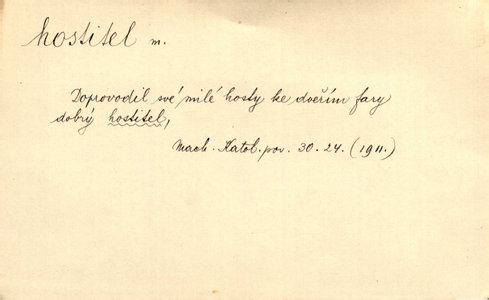 hostitel m.
Doprovodil své milé hosty ke dveřím fary
dobrý hostitel,
Mach. Katol. pov. 30. 24. (1911.)